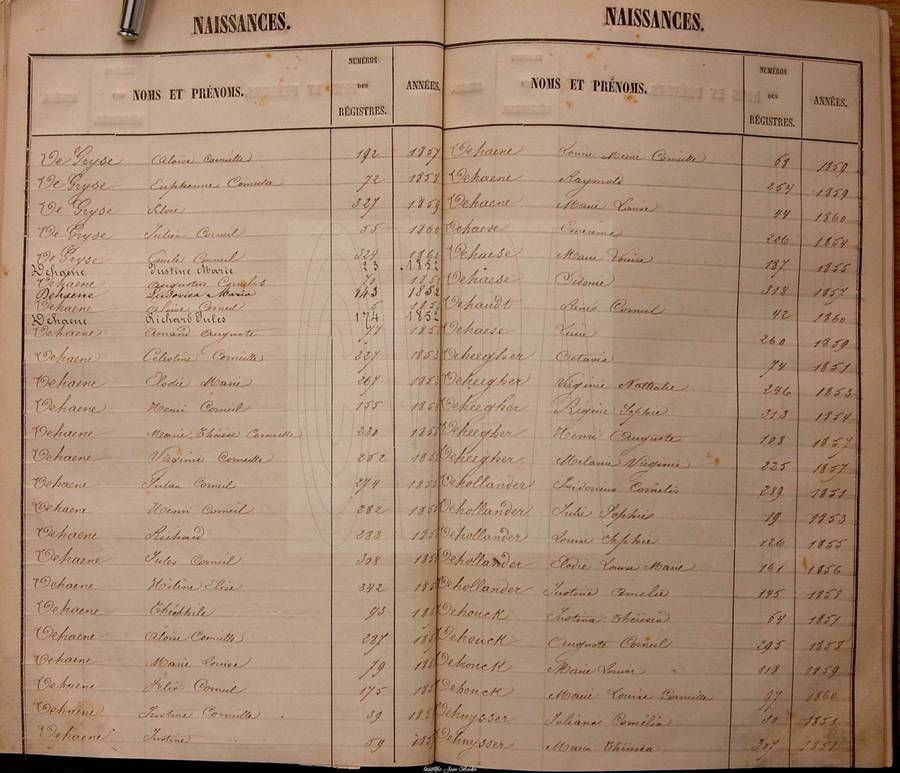 NAISSANCES.
NOMS ET PRÉNOMS. NUMÉROS DES RÉGISTRES. ANNÉES.
De Gryse Aloise Cornille 192 1857
De Gryse Euphemie Cornille 72 1858
De Gryse Silvie 327 1859
De Gryse Julien Corneil 55 1860
De Gryse Emile Corneil 324 1860
Dehaene Justine Marie 23 1852
Dehaene Augustin Cornelis 70 185
Dehaene Ludovica Maria 143 1852
Dehaene Corneil 5 185
Dehaene Richard Jules 174 1852
Dehaene Amand Auguste 77 185
Dehaene Célestine Cornille 227 1853
Dehaene Elodie Marie 267 1853
Dehaene Henri Corneil 155 185
Dehaene Marie Thérèse Cornille 230 185
Dehaene Virginie Cornille 252 185
Dehaene Julien Corneil 274 185
Dehaene Henri Corneil 282 185
Dehaene Richard 283 185
Dehaene Jules Corneil 308 185
Dehaene Hélène Elise 342 185
Dehaene Théophile 93 185
Dehaene Aloise Cornille 287 185
Dehaene Marie Louise 79 185
Dehaene Félix Corneil 175 185
Dehaene Justine Cornille 39 185
Dehaene Justine 59 185
NAISSANCES.
NOMS ET PRÉNOMS. NUMÉROS DES RÉGISTRES. ANNÉES.
Dehaene Louise Marie Cornille 69 1859
Dehaene Raymold 254 1859
Dehaene Marie Louise 44 1860
Dehaese 206 1854
Dehaese Marie Louise 187 1855
Dehaese Sidonie 318 1857
Dehaudt René Corneil 42 1860
Dehaese 260 1859
Deheegher Octavie 74 1851
Deheegher Virginie Nathalie 246 1853
Deheegher Régine Sophie 313 1854
Deheegher Henri Auguste 108 1857
Deheegher Melanie Virginie 225 1857
Dehollander Isidorus Cornelis 289 1851
Dehollander Julie Sophie 19 1853
Dehollander Louise Sophie 126 1855
Dehollander Elodie Louise Marie 161 1856
Dehollander Justine Amelie 145 1858
Dehouck Justina Theresia 64 1851
Dehouck Auguste Corneil 295 1858
Dehouck Marie Louise 118 1859
Dehouck Marie Louise Cornille 97 1860
Dehuysser Juliana Cornélia 30 1851
Dehuysser Maria 307 1851